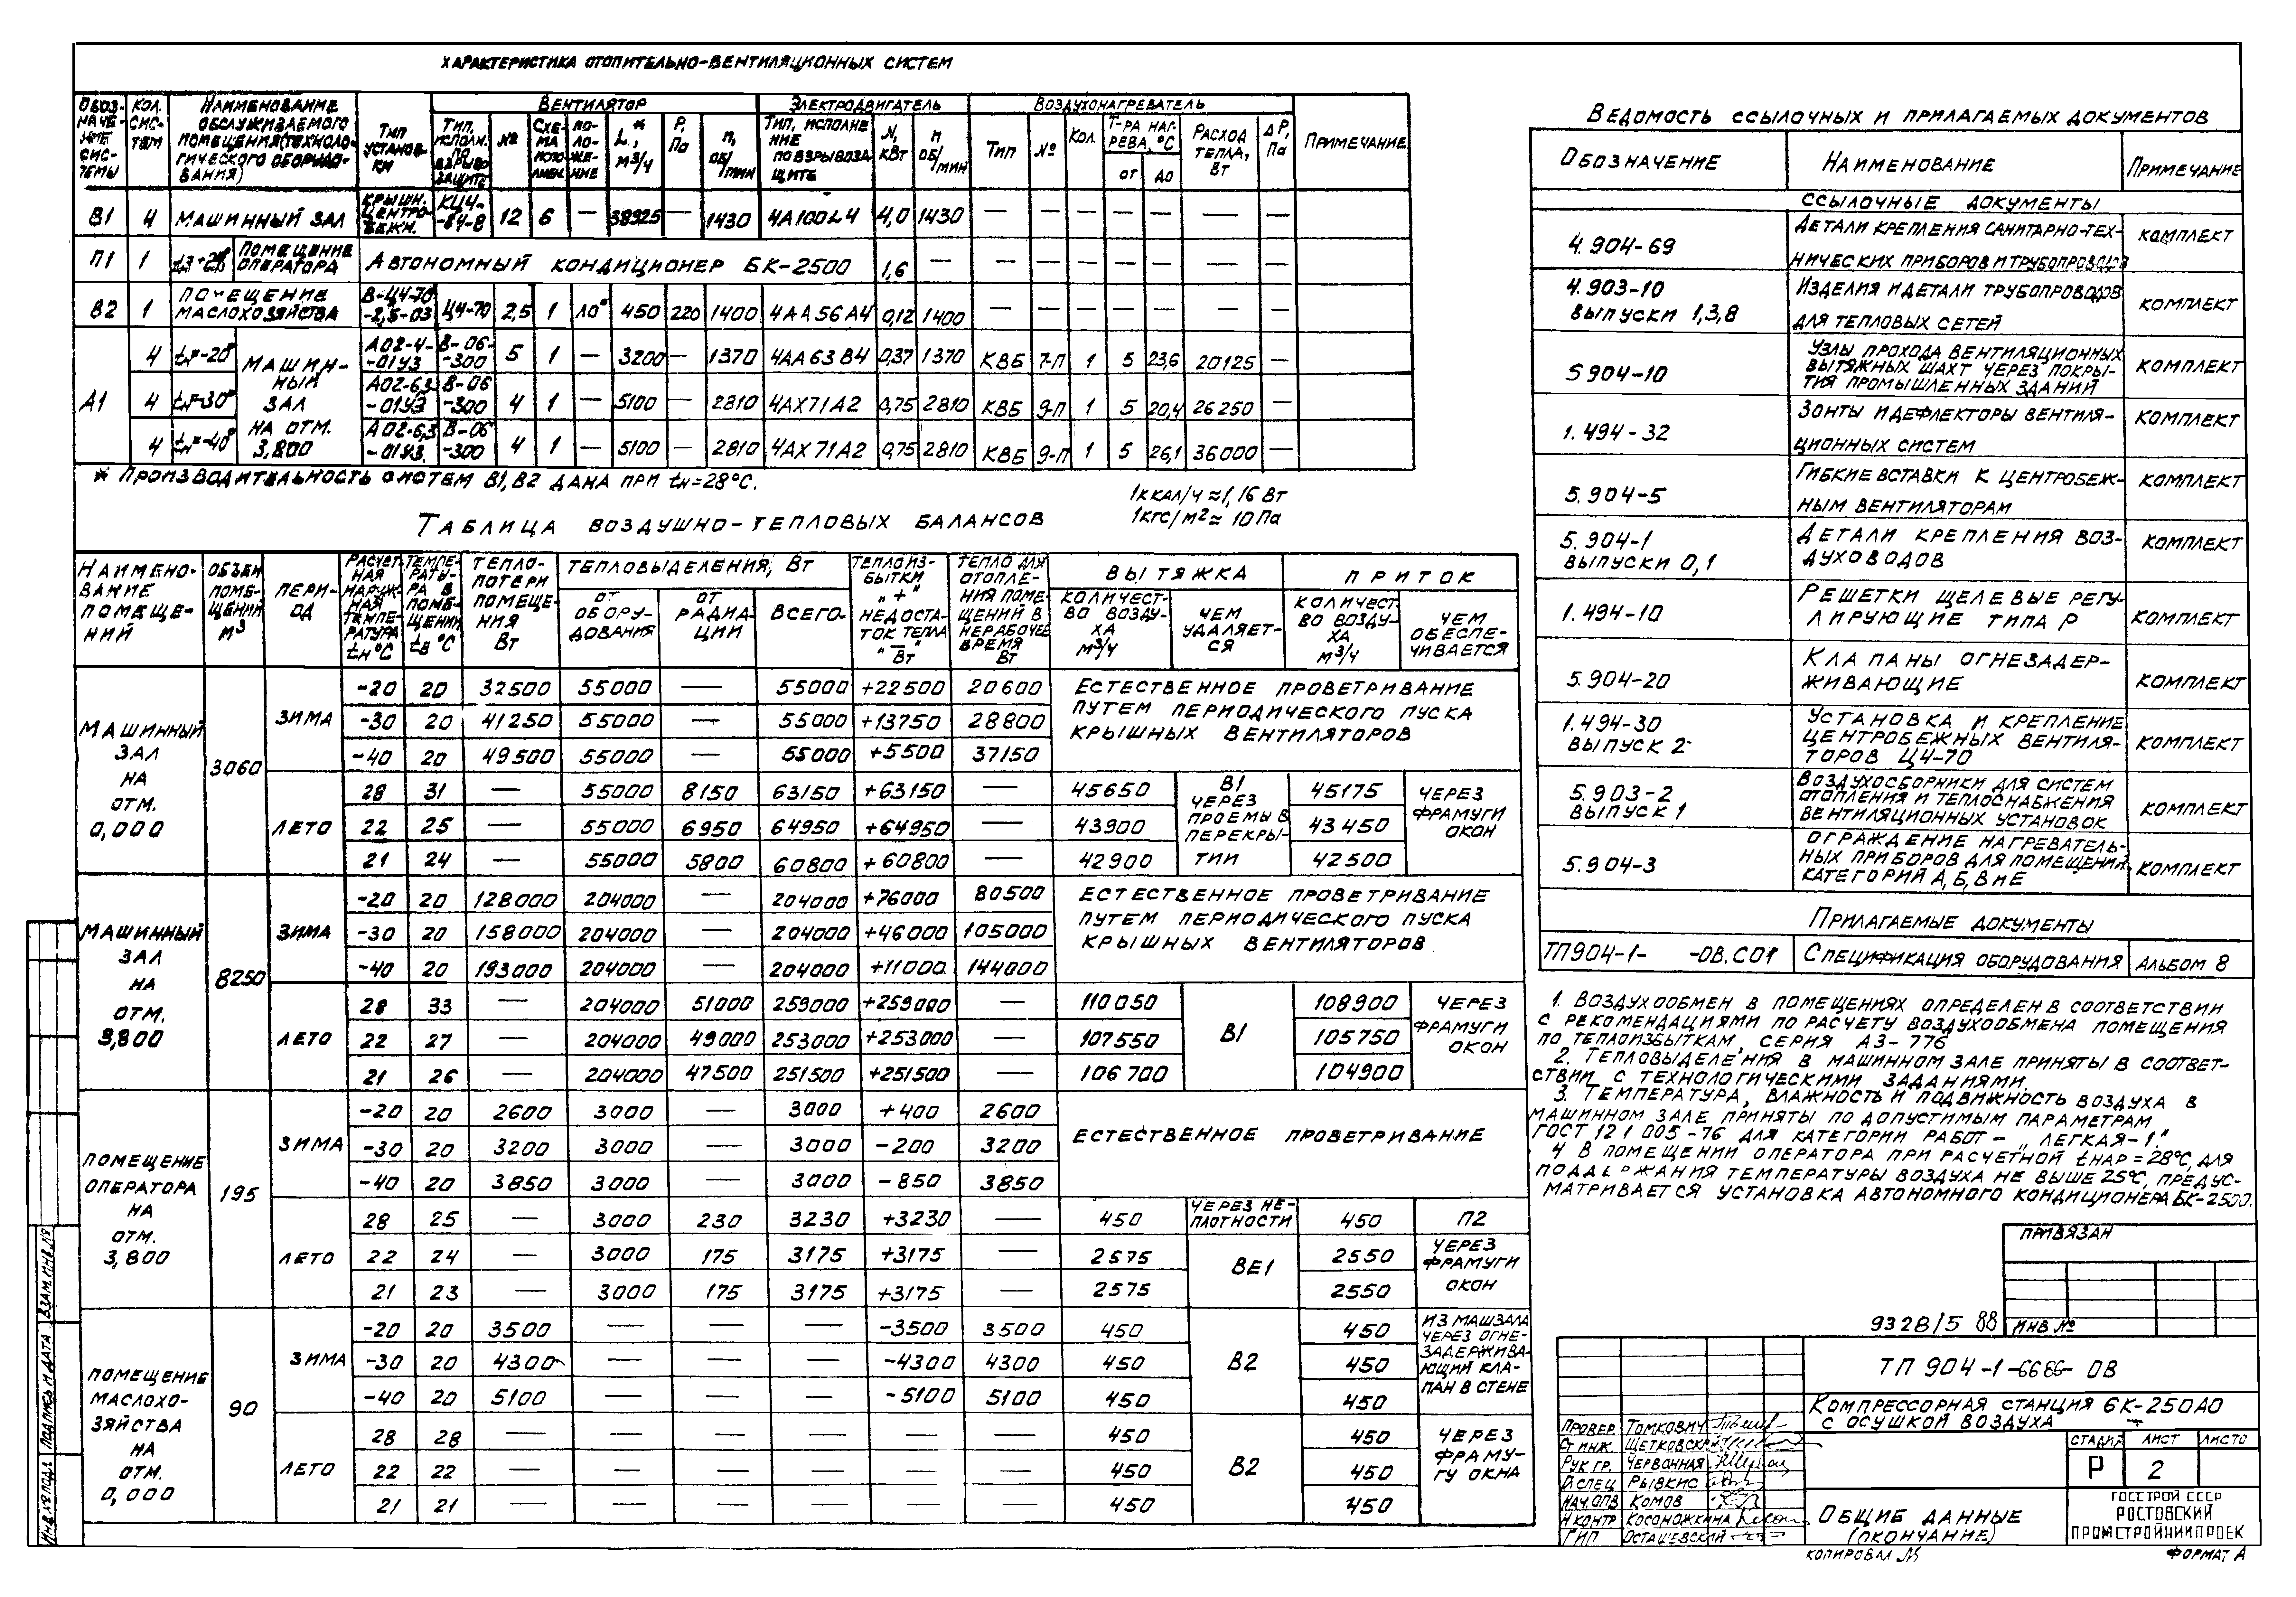 ХАРАКТЕРИСТИКА ОТОПИТЕЛЬНО-ВЕНТИЛЯЦИОННЫХ СИСТЕМ
ОБОЗ-НАЧЕ-НИЕ СИС-ТЕМЫ КОЛ. СИС-ТЕМ НАИМЕНОВАНИЕ ОБСЛУЖИВАЕМОГО ПОМЕЩЕНИЯ(ТЕХНОЛО-ГИЧЕСКОГО ОБОРУДО-ВАНИЯ) ТИП УСТАНОВ-КИ ВЕНТИЛЯТОР ЭЛЕКТРОДВИГАТЕЛЬ ВОЗДУХОНАГРЕВАТЕЛЬ ПРИМЕЧАНИЕ
ТИП, ИСПОЛН. ПО ВЗРЫВО ЗАЩИТЕ № СХЕ-МА ИСПОЛ-НЕН. ПО-ЛО-ЖЕ-НИЕ L, * М3/Ч Р, Па n, ОБ/МИН ТИП, ИСПОЛНЕ НИЕ ПО ВЗРЫВОЗА ЩИТЕ N, КВТ П ОБ/МИН ТИП № КОЛ. Т-РА НАГ-РЕВА, °С ОТ ДО РАСХОД ТЕПЛА, ВТ ΔР, Па
В1 4 МАШИННЫЙ ЗАЛ КРЫШН. ЦЕНТРО-БЕЖН. КЦ4--84-8 12 6 — 38925 — 1430 4А100L4 4,0 1430 — — — — — — —
П1 1 ПОМЕЩЕНИЕ ОПЕРАТОРА АВТОНОМНЫЙ КОНДИЦИОНЕР БК-2500 1,6 — — — — — — — —
В2 1 ПОМЕЩЕНИЕ МАСЛОХОЗЯЙСТВА В-Ц4-70-2,5-03 Ц4-70 2,5 1 Л0° 450 220 1400 4АА56А4 0,12 1400 — — — — — — —
А1 4 tн-20° МАШИН-НЫЙ ЗАЛ НА ОТМ. 3,800 А02-4--01У3 В-06--300 5 1 — 3200 — 1370 4АА63В4 0,37 1370 КВБ 7-П 1 5 23,6 20125 —
4 tн-30° А02-6,3-01У3 В-06-300 4 1 — 5100 — 2810 4АХ71А2 0,75 2810 КВБ 9-П 1 5 20,4 26250 —
4 tн=-40° А02-6,3-01У3. В-06-300 4 1 — 5100 — 2810 4АХ71А2 0,75 2810 КВБ 9-П 1 5 26,1 36000 —
* ПРОИЗВОДИТЕЛЬНОСТЬ СИСТЕМ В1, В2 ДАНА ПРИ tн=28°С.
1ККАЛ/Ч ≈1,16 ВТ
1КГС/М² ≈ 10 Па
ТАБЛИЦА ВОЗДУШНО-ТЕПЛОВЫХ БАЛАНСОВ
НАИМЕНО-ВАНИЕ ПОМЕЩЕ-НИЙ ОБЪЕМ ПОМЕ-ЩЕНИЙ М3 ПЕРИ-ОД РАСЧЕТ НАЯ НАРУЖ-НАЯ ТЕМПЕ-РАТУРА tн °С ТЕМПЕ-РАТУ-РА В ПОМЕ-ЩЕНИИ tв °С ТЕПЛО-ПОТЕРИ ПОМЕЩЕ-НИЯ ВТ ТЕПЛОВЫДЕЛЕНИЯ, Вт ТЕПЛОИЗ-БЫТКИ „+" НЕДОСТА-ТОК ТЕПЛА „—" Вт ТЕПЛО ДЛЯ ОТОПЛЕ-НИЯ ПОМЕ-ЩЕНИЙ В НЕРАБОЧЕЕ ВРЕМЯ ВТ ВЫТЯЖКА ПРИТОК
ОТ ОБОРУ-ДОВАНИЯ ОТ РАДИА-ЦИИ ВСЕГО КОЛИЧЕСТ-ВО ВОЗДУ-ХА М3/Ч ЧЕМ УДАЛЯЕТ-СЯ КОЛИЧЕСТ-ВО ВОЗДУ-ХА М3/Ч ЧЕМ ОБЕСПЕ-ЧИВАЕТСЯ
МАШИННЫЙ ЗАЛ НА ОТМ. 0,000 3060 ЗИМА -20 20 32500 55000 — 55000 +22500 20600 ЕСТЕСТВЕННОЕ ПРОВЕТРИВАНИЕ ПУТЕМ ПЕРИОДИЧЕСКОГО ПУСКА КРЫШНЫХ ВЕНТИЛЯТОРОВ
-30 20 41250 55000 — 55000 +13750 28800
-40 20 49500 55000 — 55000 +5500 37150
ЛЕТО 28 31 — 55000 8150 63150 +63150 — 45650 В1 ЧЕРЕЗ ПРОЕМЫ В ПЕРЕКРЫ-ТИИ 45175 ЧЕРЕЗ ФРАМУГИ ОКОН
22 25 — 55000 6950 64950 +64950 — 43900 43450
21 24 — 55000 5800 60800 +60800 — 42900 42500
МАШИННЫЙ ЗАЛ НА ОТМ. 3,800 8250 ЗИМА -20 20 128000 204000 — 204000 +76000 80500 ЕСТЕСТВЕННОЕ ПРОВЕТРИВАНИЕ ПУТЕМ ПЕРИОДИЧЕСКОГО ПУСКА КРЫШНЫХ ВЕНТИЛЯТОРОВ
-30 20 158000 204000 — 204000 +46000 105000
-40 20 193000 204000 — 204000 +11000 144000
ЛЕТО 28 33 — 204000 51000 259000 +259000 — 110050 В1 108900 ЧЕРЕЗ ФРАМУГИ ОКОН
22 27 — 204000 49000 253000 +253000 — 107550 105750
21 26 — 204000 47500 251500 +251500 — 106700 104900
ПОМЕЩЕНИЕ ОПЕРАТОРА НА ОТМ. 3,800 195 ЗИМА -20 20 2600 3000 — 3000 +400 2600 ЕСТЕСТВЕННОЕ ПРОВЕТРИВАНИЕ
-30 20 3200 3000 — 3000 -200 3200
-40 20 3850 3000 — 3000 -850 3850
ЛЕТО 28 25 — 3000 230 3230 +3230 — 450 ЧЕРЕЗ НЕ-ПЛОТНОСТИ 450 П2
22 24 — 3000 175 3175 +3175 — 2575 ВЕ1 2550 ЧЕРЕЗ ФРАМУГИ ОКОН
21 23 — 3000 175 3175 +3175 — 2575 2550
ПОМЕЩЕНИЕ МАСЛОХО-ЗЯЙСТВА НА ОТМ. 0,000 90 ЗИМА -20 20 3500 — — — -3500 3500 450 В2 450 ИЗ МАШЗАЛА ЧЕРЕЗ ОГНЕ-ЗАДЕРЖИВА-ЮЩИЙ КЛА-ПАН В СТЕНЕ
-30 20 4300 — — — -4300 4300 450 450
-40 20 5100 — — — -5100 5100 450 450
ЛЕТО 28 28 — — — — — — 450 В2 450 ЧЕРЕЗ ФРАМУ-ГУ ОКНА
22 22 — — — — — — 450 450
21 21 — — — — — — 450 450
ВЕДОМОСТЬ ССЫЛОЧНЫХ И ПРИЛАГАЕМЫХ ДОКУМЕНТОВ
ОБОЗНАЧЕНИЕ НАИМЕНОВАНИЕ ПРИМЕЧАНИЕ
ССЫЛОЧНЫЕ ДОКУМЕНТЫ
4.904-69 ДЕТАЛИ КРЕПЛЕНИЯ САНИТАРНО-ТЕХ-НИЧЕСКИХ ПРИБОРОВ И ТРУБОПРОВОДОВ КОМПЛЕКТ
4.903-10 ВЫПУСКИ 1,3,8 ИЗДЕЛИЯ И ДЕТАЛИ ТРУБОПРОВОДОВ ДЛЯ ТЕПЛОВЫХ СЕТЕЙ КОМПЛЕКТ
5904-10 УЗЛЫ ПРОХОДА ВЕНТИЛЯЦИОННЫХ ВЫТЯЖНЫХ ШАХТ ЧЕРЕЗ ПОКРЫ-ТИЯ ПРОМЫШЛЕННЫХ ЗДАНИЙ КОМПЛЕКТ
1.494-32 ЗОНТЫ И ДЕФЛЕКТОРЫ ВЕНТИЛЯ-ЦИОННЫХ СИСТЕМ КОМПЛЕКТ
5.904-5 ГИБКИЕ ВСТАВКИ К ЦЕНТРОБЕЖ-НЫМ ВЕНТИЛЯТОРАМ КОМПЛЕКТ
5.904-1 ВЫПУСКИ 0,1 ДЕТАЛИ КРЕПЛЕНИЯ ВОЗ-ДУХОВОДОВ КОМПЛЕКТ
1.494-10 РЕШЕТКИ ЩЕЛЕВЫЕ РЕГУ-ЛИРУЮЩИЕ ТИПА Р КОМПЛЕКТ
5.904-20 КЛАПАНЫ ОГНЕЗАДЕР-ЖИВАЮЩИЕ КОМПЛЕКТ
1.494-30 ВЫПУСК 2 УСТАНОВКА И КРЕПЛЕНИЕ ЦЕНТРОБЕЖНЫХ ВЕНТИЛЯ-ТОРОВ Ц4-70 КОМПЛЕКТ
5.903-2 ВЫПУСК 1 ВОЗДУХОСБОРНИКИ ДЛЯ СИСТЕМ ОТОПЛЕНИЯ И ТЕПЛОСНАБЖЕНИЯ ВЕНТИЛЯЦИОННЫХ УСТАНОВОК КОМПЛЕКТ
5.904-3 ОГРАЖДЕНИЕ НАГРЕВАТЕЛЬ-НЫХ ПРИБОРОВ ДЛЯ ПОМЕЩЕНИЙ КАТЕГОРИЙ А, Б, В И Е КОМПЛЕКТ
ПРИЛАГАЕМЫЕ ДОКУМЕНТЫ
ТП904-1- -ОВ.С01 СПЕЦИФИКАЦИЯ ОБОРУДОВАНИЯ АЛЬБОМ 8
1. ВОЗДУХООБМЕН В ПОМЕЩЕНИЯХ ОПРЕДЕЛЕН В СООТВЕТСТВИИ
С РЕКОМЕНДАЦИЯМИ ПО РАСЧЕТУ ВОЗДУХООБМЕНА ПОМЕЩЕНИЯ
ПО ТЕПЛОИЗБЫТКАМ, СЕРИЯ А3-776
2. ТЕПЛОВЫДЕЛЕНИЯ В МАШИННОМ ЗАЛЕ ПРИНЯТЫ В СООТВЕТ-
СТВИИ С ТЕХНОЛОГИЧЕСКИМИ ЗАДАНИЯМИ.
3. ТЕМПЕРАТУРА, ВЛАЖНОСТЬ И ПОДВИЖНОСТЬ ВОЗДУХА В
МАШИННОМ ЗАЛЕ ПРИНЯТЫ ПО ДОПУСТИМЫМ ПАРАМЕТРАМ
ГОСТ 12 1 005-76 ДЛЯ КАТЕГОРИИ РАБОТ - „ЛЕГКАЯ-1."
4 В ПОМЕЩЕНИИ ОПЕРАТОРА ПРИ РАСЧЕТНОЙ tНАР=28°С, ДЛЯ
ПОДДЕРЖАНИЯ ТЕМПЕРАТУРЫ ВОЗДУХА НЕ ВЫШЕ 25°С, ПРЕДУС-
МАТРИВАЕТСЯ УСТАНОВКА АВТОНОМНОГО КОНДИЦИОНЕРА БК-2500.
ПРИВЯЗАН
ИНВ №
9328/5 88
ТП 904-1-6686- ОВ
КОМПРЕССОРНАЯ СТАНЦИЯ 6К-250АО
С ОСУШКОЙ ВОЗДУХА
СТАДИЯ ЛИСТ ЛИСТО
Р 2
ПРОВЕР. ТОМКОВИЧ
СТ ИНЖ. ЩЕТКОВСКИЙ
РУК ГР. ЧЕРВОННАЯ
ГЛ СПЕЦ РЫВКИС
НАЧ.ОПВ КОМОВ
Н КОНТР КОСОНОЖКИНА
ГИП ОСТАШЕВСКИЙ
ОБЩИЕ ДАННЫЕ
(ОКОНЧАНИЕ)
ГОССТРОЙ СССР
РОСТОВСКИЙ
ПРОМСТРОЙНИИПРОЕК
КОПИРОВАЛ
ФОРМАТ А
ИНВ.№ ПОДЛ. ПОДПИСЬ И ДАТА ВЗАМ.ИНВ.№